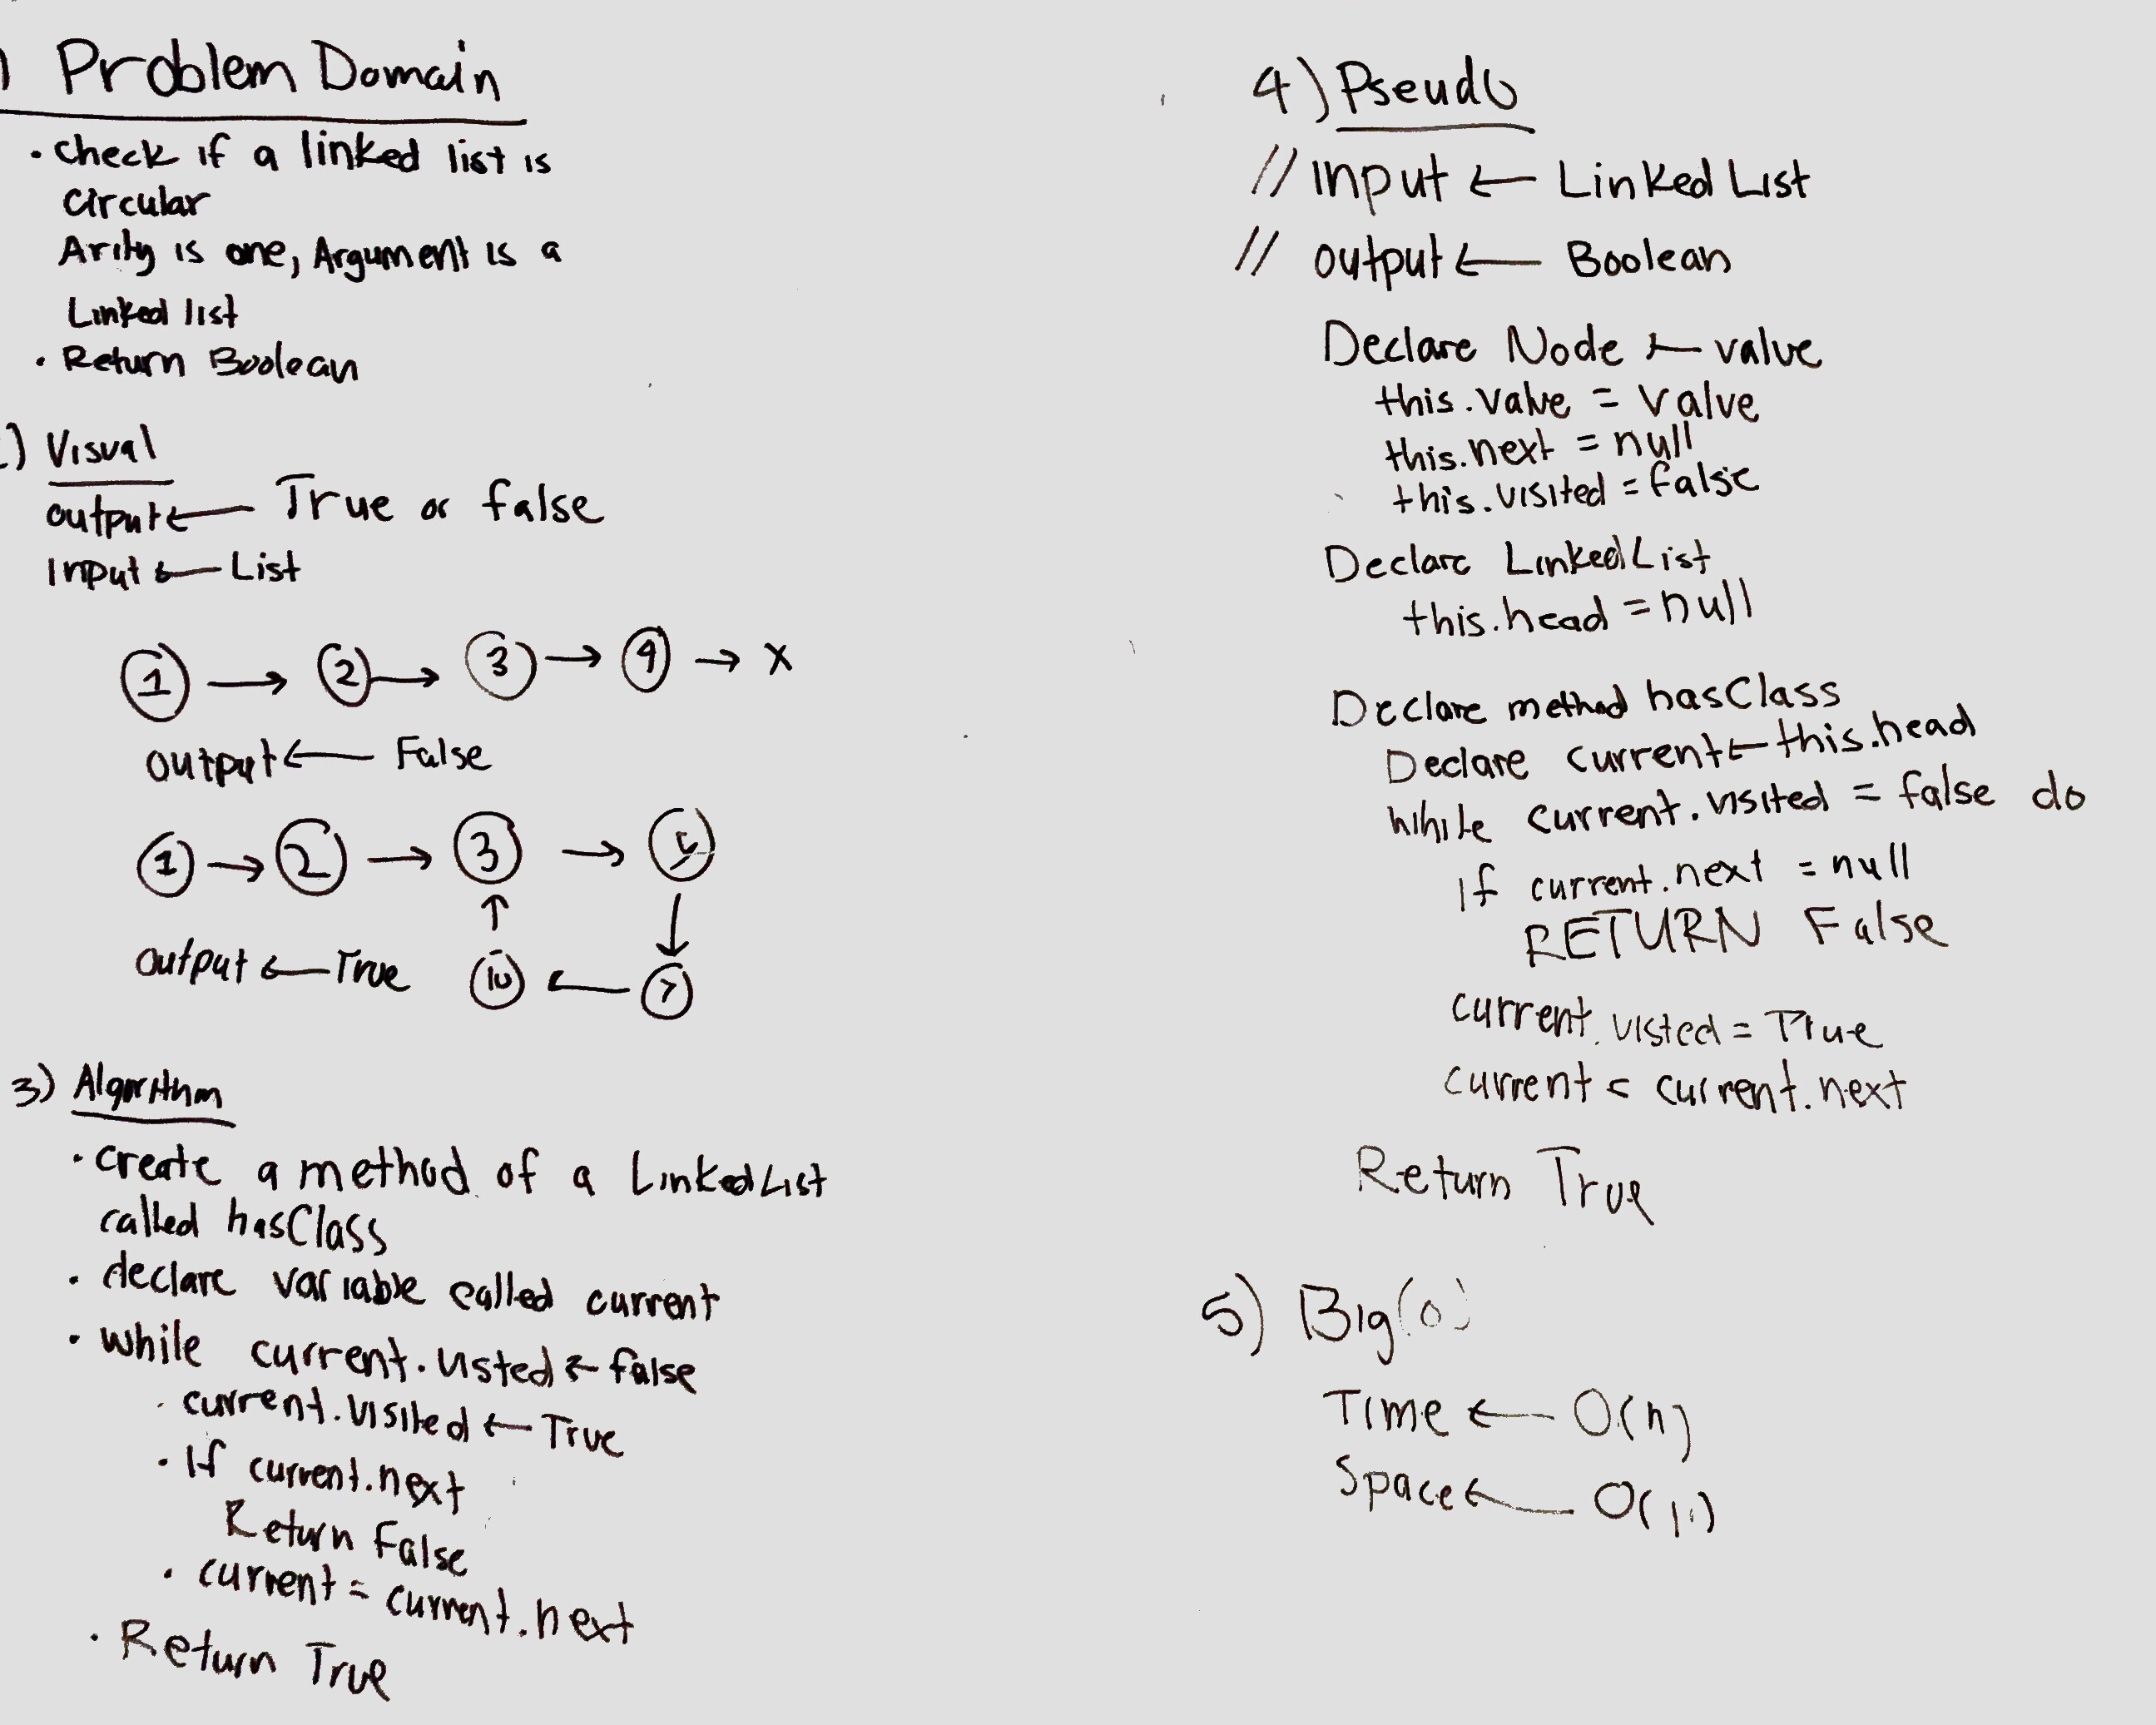 ) Problem Domain
· check if a linked list is
circular
Arity is one, Argument is a
Linked list
· Return Boolean
) Visual
output ← True or false
Input ← List
1 → 2 → 3 → 4 → x
output ← False
1 → 2 → 3 →
↑ ↓
output ← True 10 ← 7
3) Algorithm
· create a method of a LinkedList
called hasClass
· declare variable called current
· while current.visted ← false
· current.visited ← True
· If current.next
Return False
· current = current.next
· Return True
4) Pseudo
// Input ← Linked List
// output ← Boolean
Declare Node ← value
this.value = value
this.next = null
this.visited = false
Declare LinkedList
this.head = null
Declare method hasClass
Declare current ← this.head
While current.visited = false do
If current.next = null
RETURN False
current.visted = True
current = current.next
Return True
5) Big(o)
Time ← O(n)
Space ←